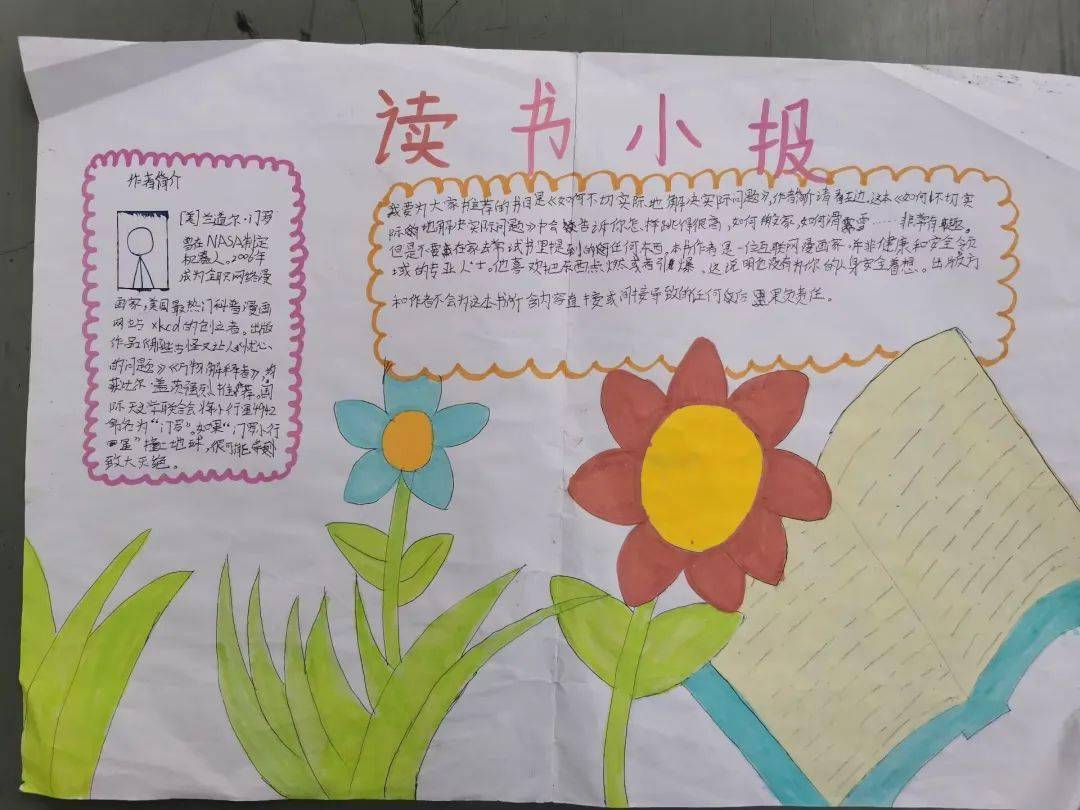 读书小报
作者简介
[美]兰道尔·门罗
曾在NASA制定
机器人。2006年
成为全职网络漫
画家,美国最热门科普漫画
网站xkcd的创立者。出版
作品《那些古怪又让人忧心
的问题》《万物解释者》,均
获比尔·盖茨强烈推荐。国
际天文学联合会将小行星4942
命名为“门罗”。如果“门罗小行
星”撞上地球,很可能导
致大灭绝。
我要为大家推荐的书目是《如何不切实际地解决实际问题》,作者简介请看左边。这本《如何不切实
际的地解决实际问题》中会告诉你怎样跳得很高,如何搬家,如何滑雪……非常有趣。
但是不要在家去尝试书里提到的任何东西。本书作者是一位互联网漫画家,并非健康和安全领
域的专业人士。他喜欢把东西点燃或者引爆,这说明他没有为你的人身安全着想。出版方
和作者不会为这本书所含内容直接或间接导致的任何后果负责任。